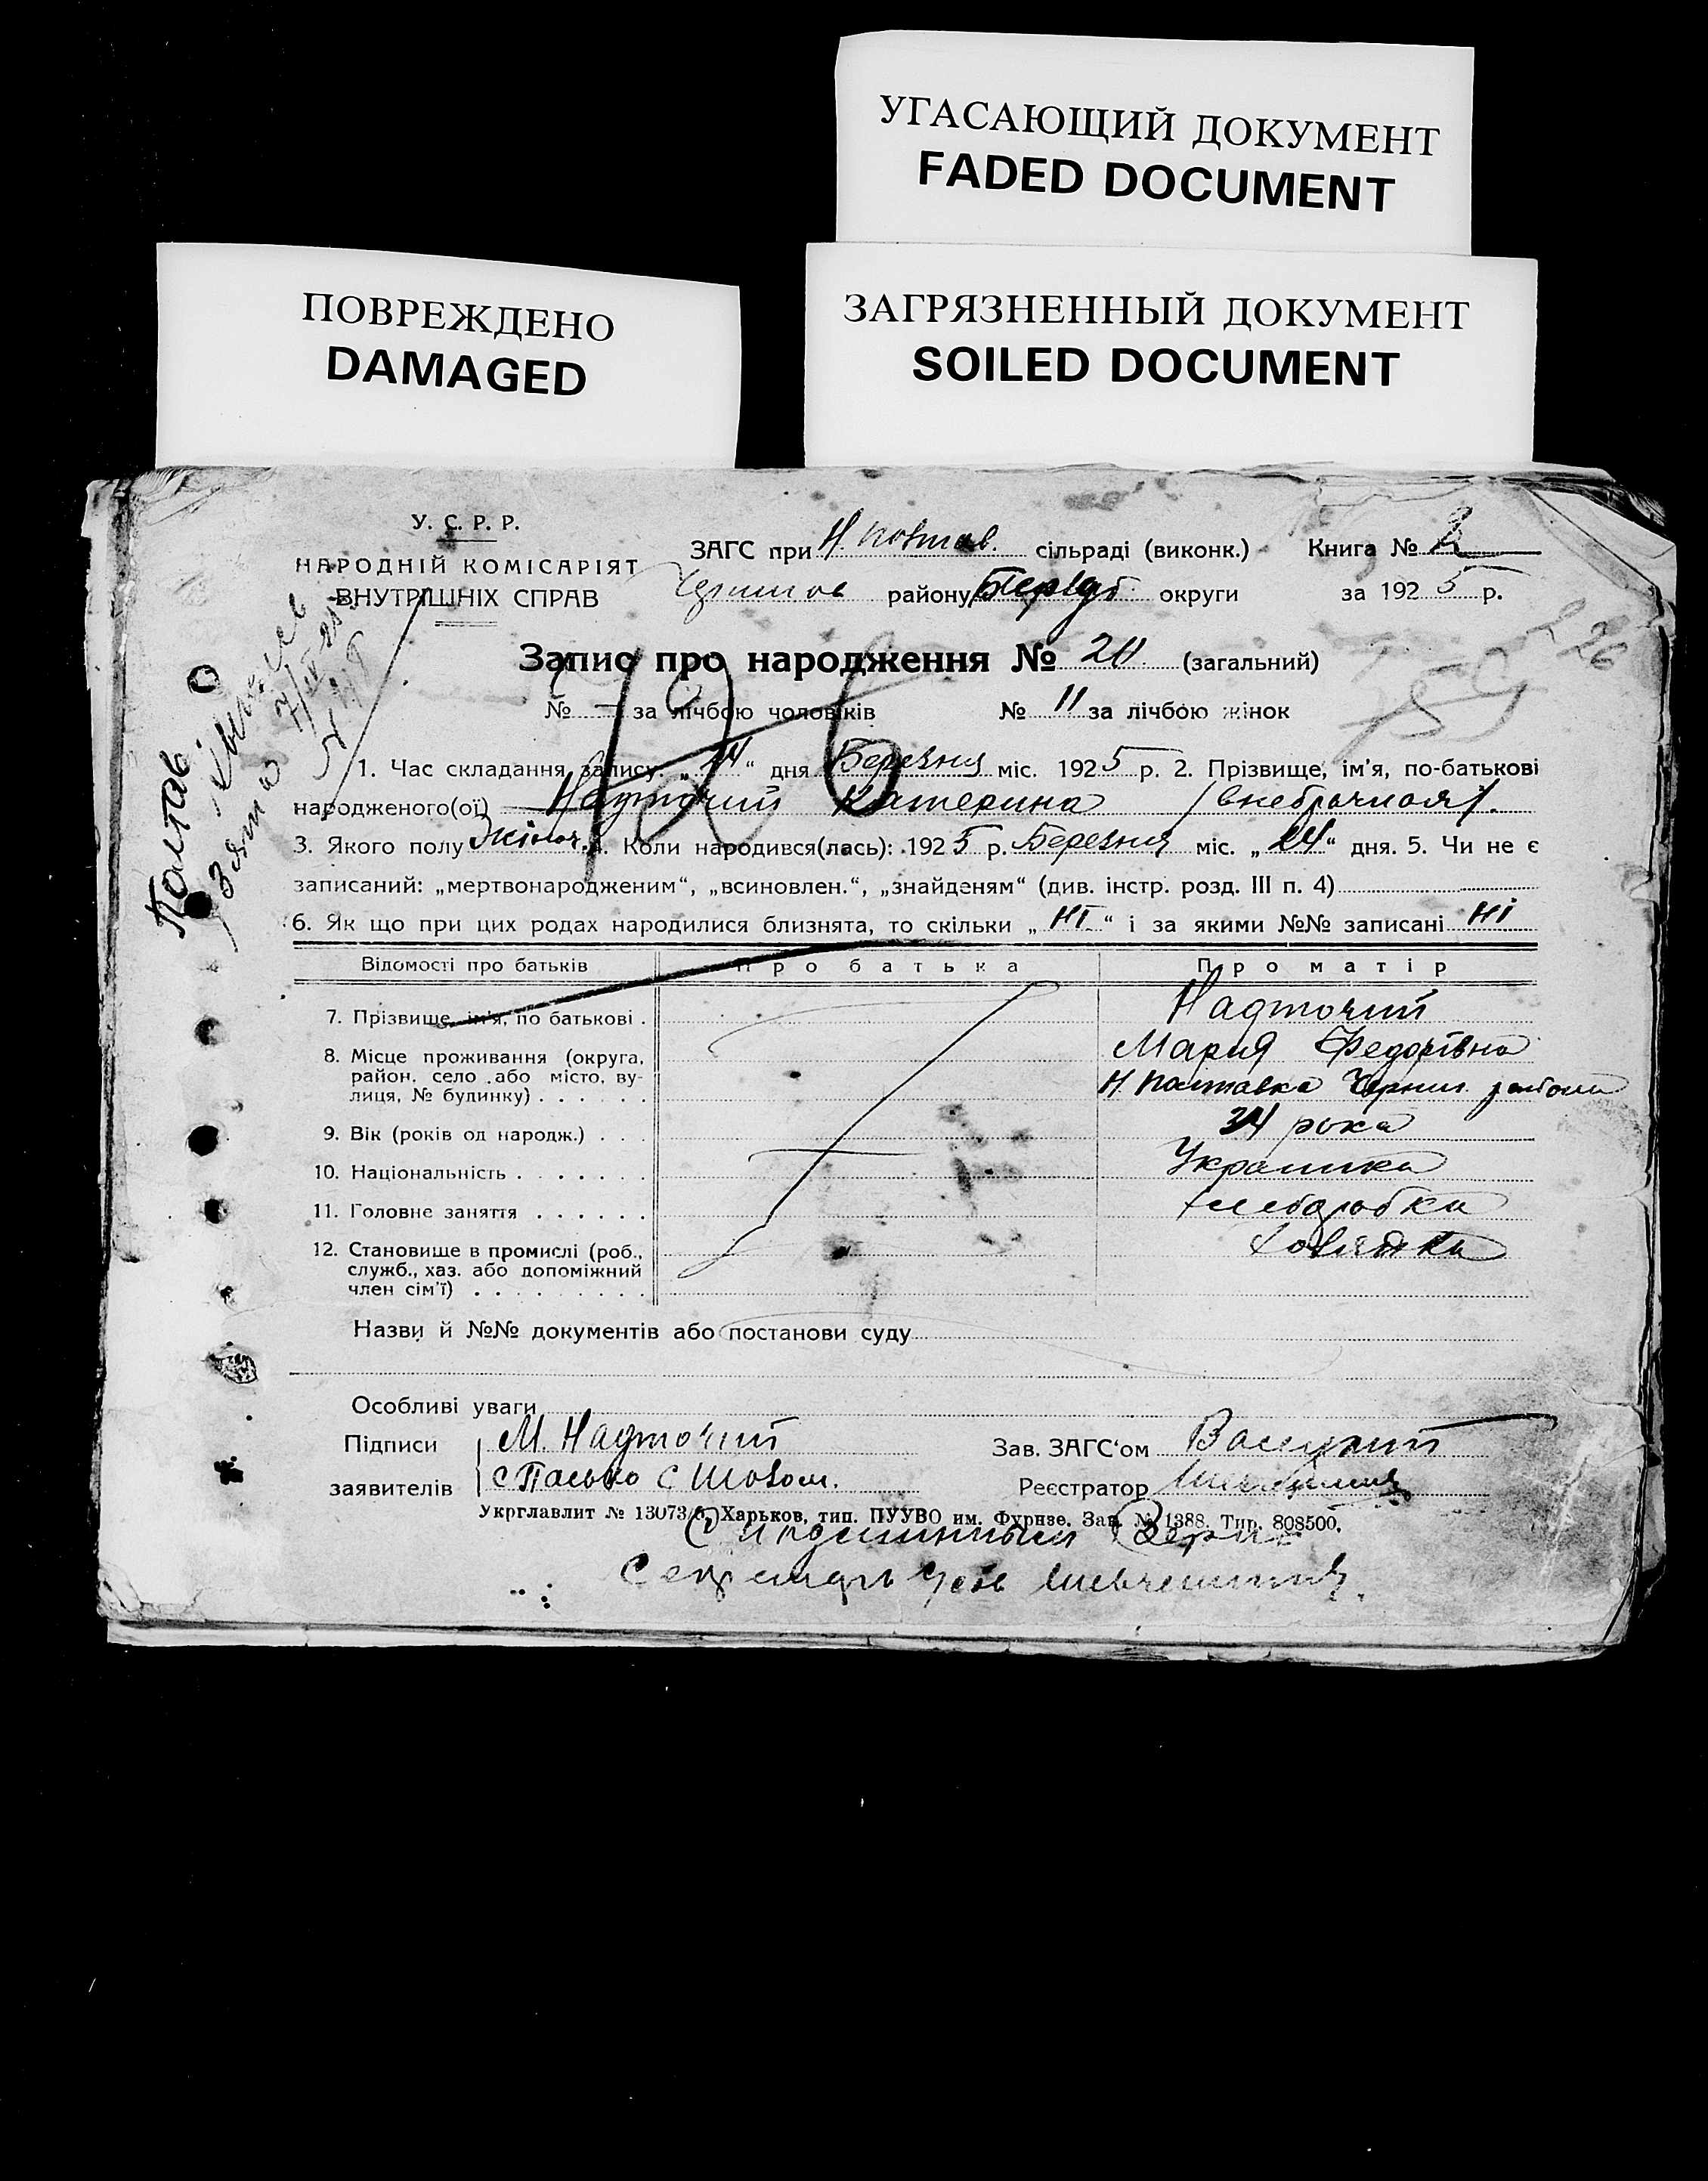 УГАСАЮЩИЙ ДОКУМЕНТ
FADED DOCUMENT
ПОВРЕЖДЕНО
DAMAGED
ЗАГРЯЗНЕННЫЙ ДОКУМЕНТ
SOILED DOCUMENT
У. С. Р. Р.
НАРОДНІЙ КОМІСАРІЯТ
ВНУТРІШНІХ СПРАВ
ЗАГС при Н полтав. сільраді (виконк.) Книга № 2
району округи за 1925 р.
226
Запис про народження № 20 (загальний)
№ — за лічбою чоловіків № 11 за лічбою жінок
59
196
Полтав
1. Час складання запису. „24“ дня Березня міс. 1925 р. 2. Прізвище, ім'я, по-батькові
народженого(ої) Надточий Катерина (внебрачная).
3. Якого полу жіноч. 4. Коли народився(лась): 1925 р. Березня міс. „24“ дня. 5. Чи не є
записаний: „мертвонародженим“, „всиновлен.“, „знайденям“ (див. інстр. розд. III п. 4)
6. Як що при цих родах народилися близнята, то скільки „ні“ і за якими №№ записані ні
Відомості про батьків Про батька Про матір
7. Прізвище, ім'я, по батькові . Надточий
Мария Федорівна
8. Місце проживання (округа, район, село або місто, вулиця, № будинку) . . . . . . Н. Полтавка Черниг. района
9. Вік (років од народж.) . . . 34 рока
10. Національність . . . . . . . Украинка
11. Головне заняття . . . . . . хлеборобка
12. Становище в промислі (роб., служб., хаз. або допоміжний член сім'ї) . . . . . . . . .
Назви й №№ документів або постанови суду
Особливі уваги
Підписи М. Надточий Зав. ЗАГС'ом
заявителів Реєстратор
Укрглавлит № 13073/б, Харьков, тип. ПУУВО им. Фрунзе. Зак. № 1388. Тир. 808500.
С подлинным Верно
Секретарь